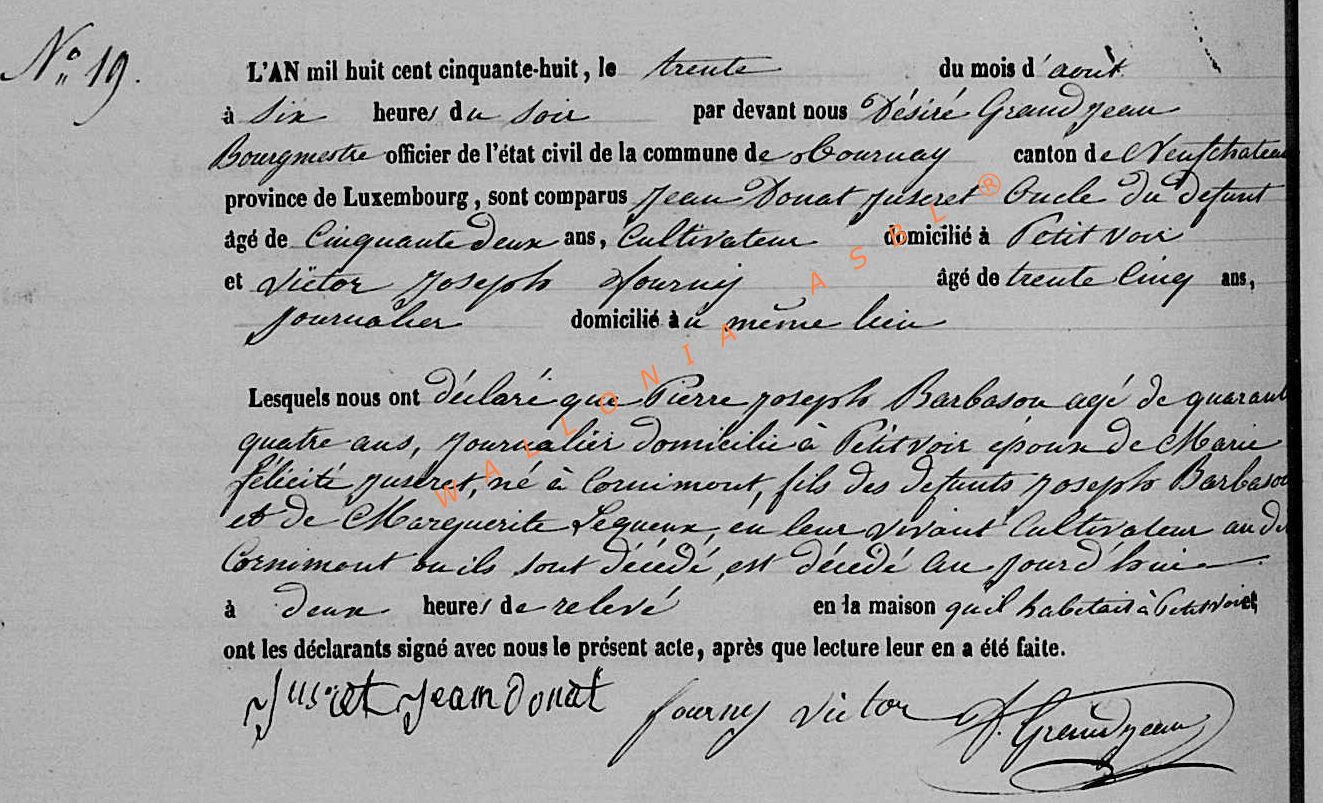 N° 19.
L'AN mil huit cent cinquante-huit, le trente du mois d'août
à six heures du soir par devant nous Désiré Grandjean
Bourgmestre officier de l'état civil de la commune de Tournay canton de Neufchateau
province de Luxembourg, sont comparus Jean Donat Juseret Oncle du defunt
âgé de Cinquante deux ans, Cultivateur domicilié à Petit voir
et Victor Joseph Fourny âgé de trente cinq ans,
Journalier domicilié au même lieu
Lesquels nous ont déclaré que Pierre Joseph Barbason agé de quarante
quatre ans, Journalier domicilié à Petitvoir époux de Marie
félicité Juseret, né à Cornimont, fils des defunts Joseph Barbason
et de Marguerite Lequeux, en leur vivant Cultivateur au dit
Cornimont ou ils sont décédé, est décédé au jourd'hui
à deux heures de relevé en la maison qu'il habitait à Petitvoir et
ont les déclarants signé avec nous le présent acte, après que lecture leur en a été faite.
Jusret Jean Donat fourny victor D. Grandjean
WALLONIA ASBL®